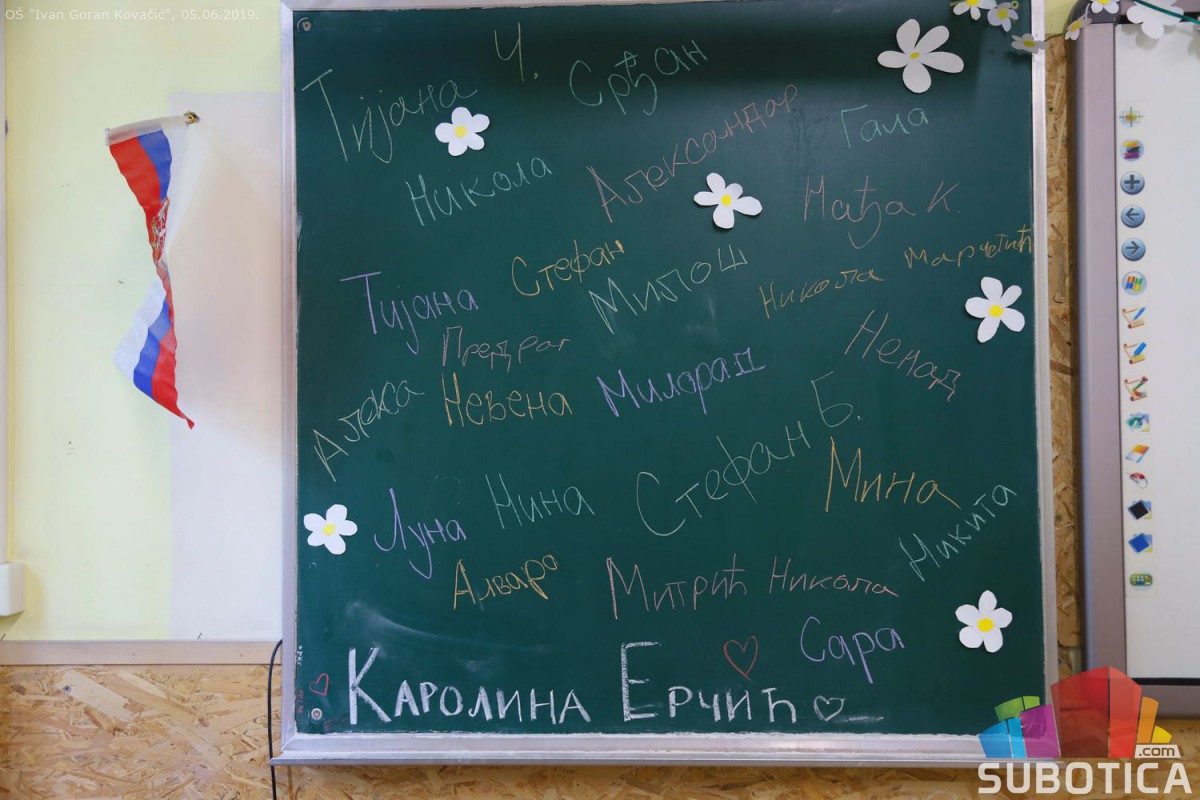 OŠ "Ivan Goran Kovačić", 05.06.2019.
Тијана Ч.
Срђан
Александар
Гала
Никола
Нађа К.
Стефан
Милош
Никола Марчетић
Тијана
Предраг
Ненад
Алекса
Невена
Милорад
Стефан Б.
Мина
Нина
Луна
Никита
Алваро
Митрић Никола
Сара
Каролина Ерчић
.com
SUBOTICA